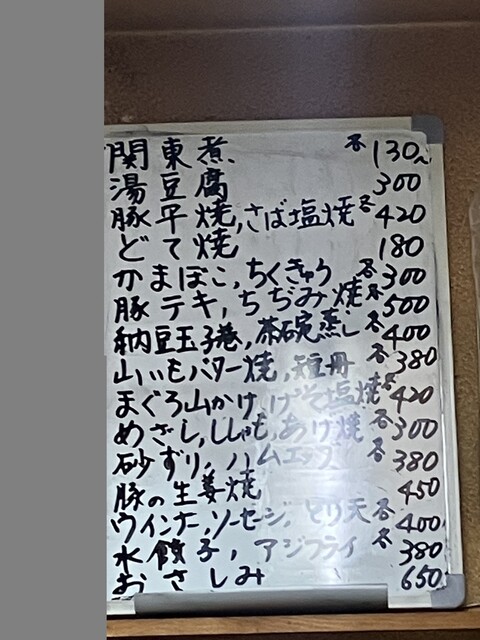 関東煮 各130~
湯豆腐 300
豚平焼,さば塩焼 各420
どて焼 180
かまぼこ,ちくきゅう 各300
豚テキ,ちぢみ焼 各500
納豆玉子巻,茶碗蒸し 各400
山いもバター焼,短冊 各380
まぐろ山かけ,げそ塩焼 各420
めざし,ししゃも,あげ焼 各300
砂ずり,ハムエッグ 各380
豚の生姜焼 450
ウインナー,ソーセージ,とり天 各400
水餃子,アジフライ 各380
おさしみ 650